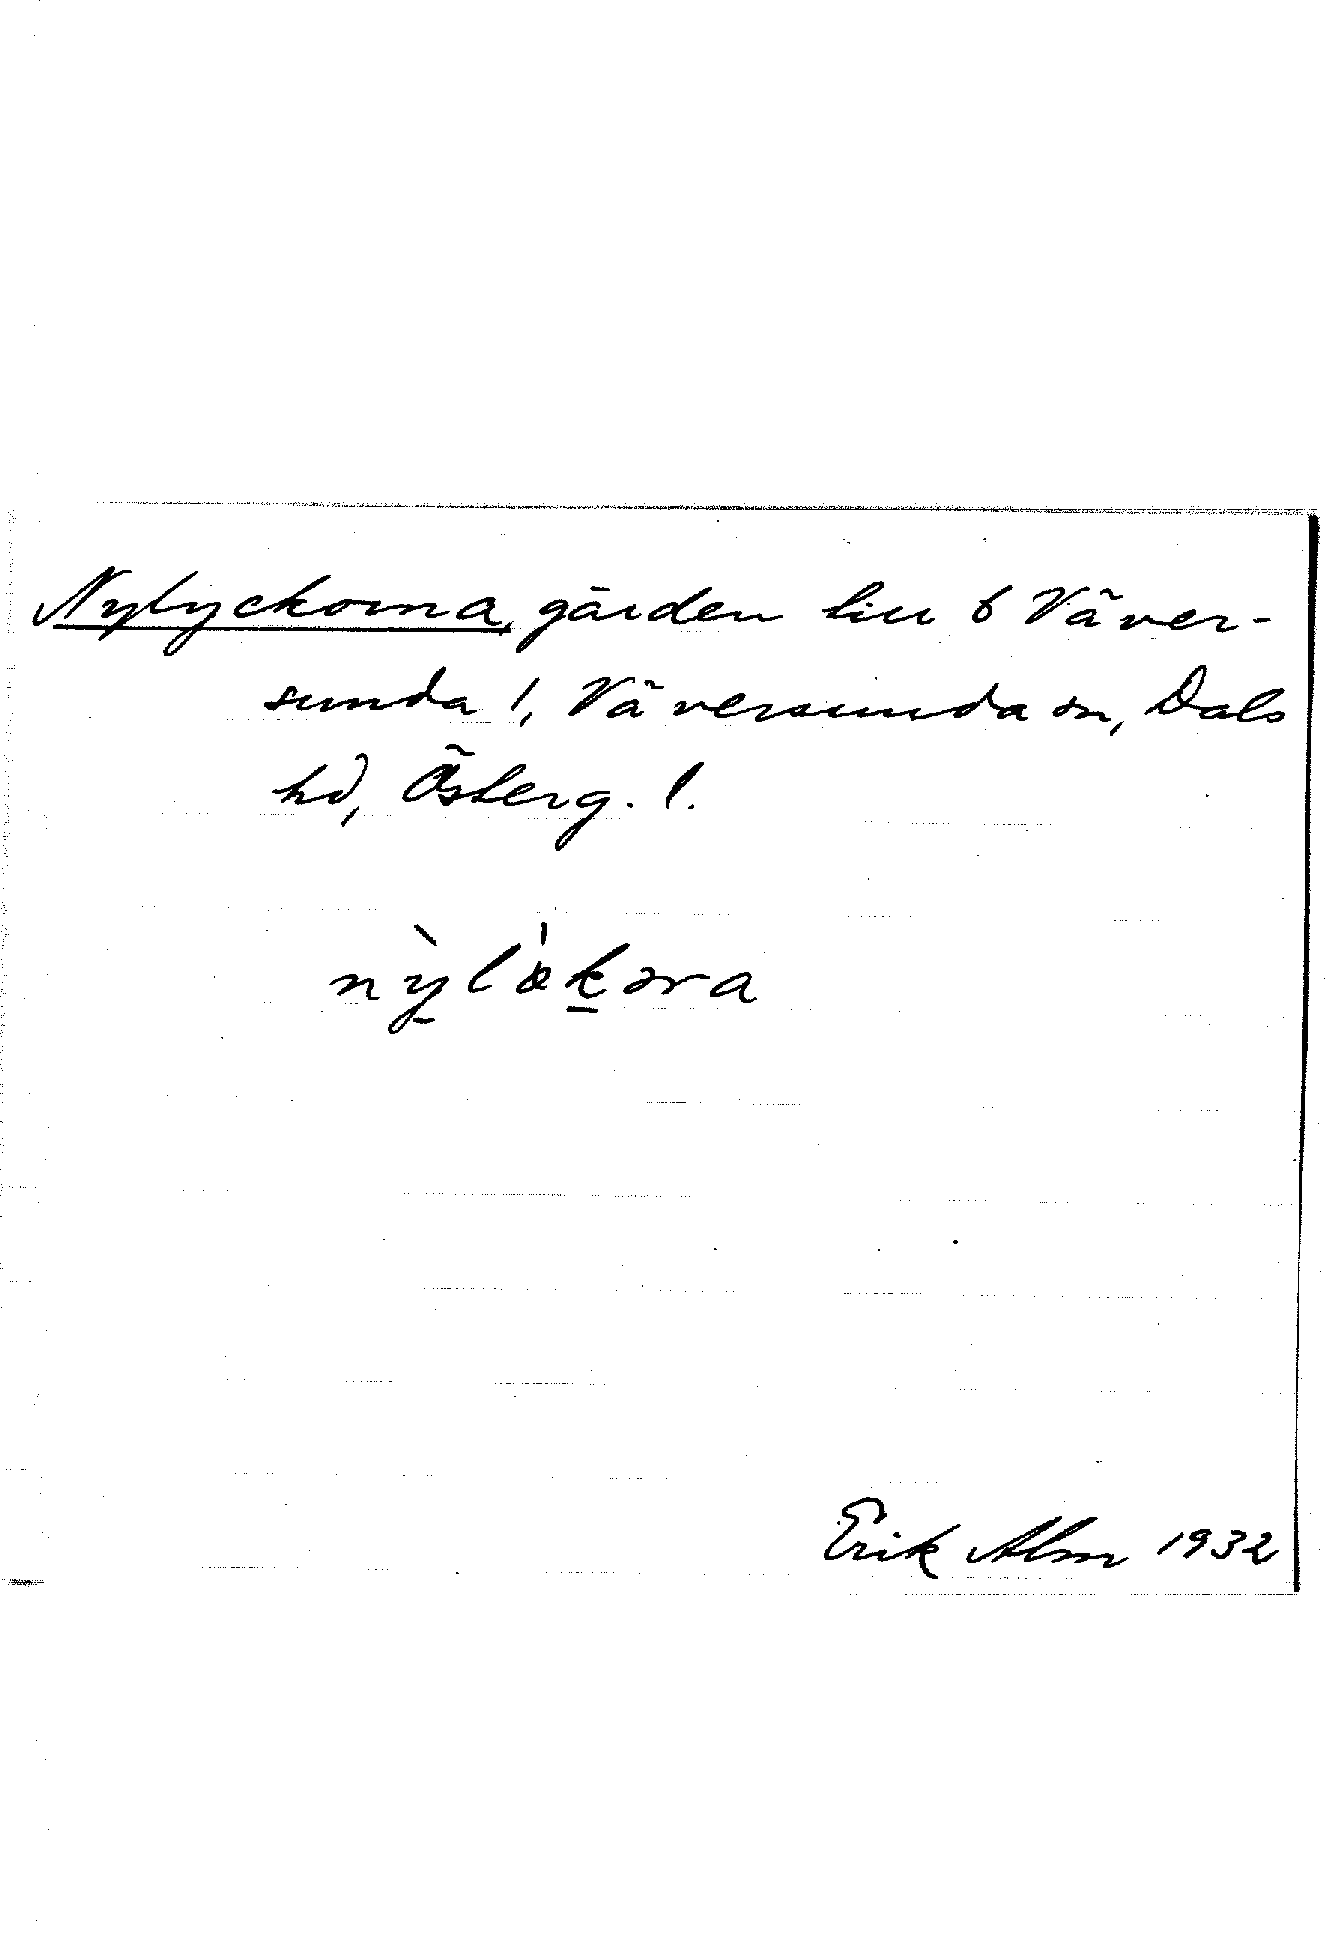 Nylyckorna, gärden till 6 Väver-
sunda 1, Väversunda sn, Dals
hd, Österg. l.
nỳlökora
Erik Alm 1932